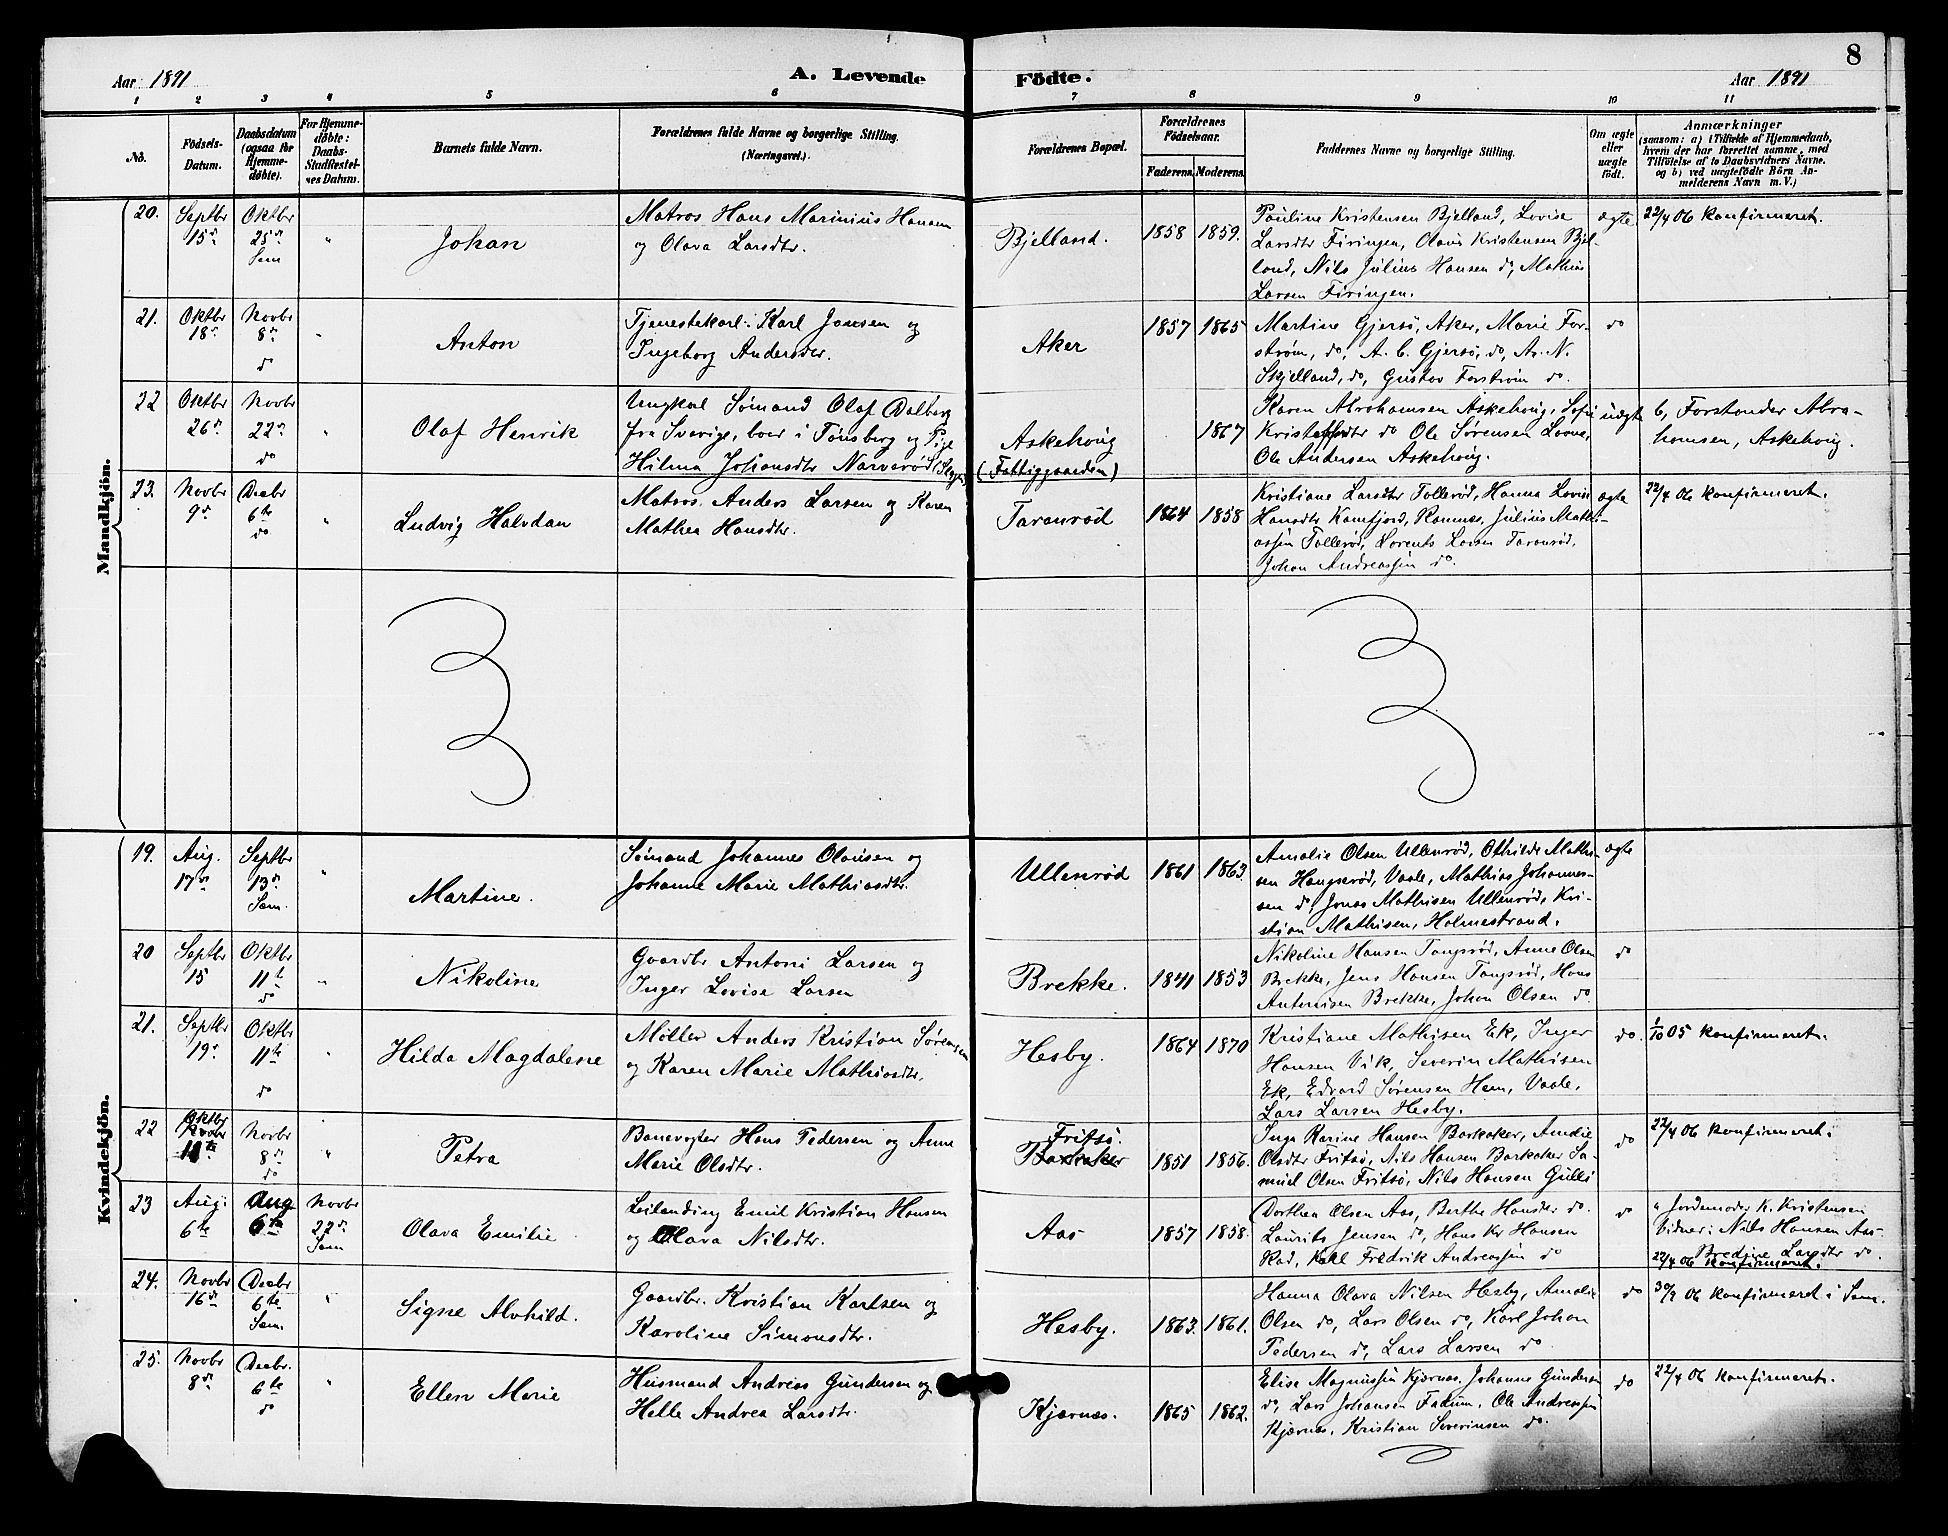 8
Aar 1891
A. Levende
Födte.
Aar 1891
1 2 3 4 5 6 7 8 9 10 11
No.
Födsels-
Datum.
Daabsdatum
(ogsaa for
Hjemme-
döbte).
For Hjemme-
döbte:
Daabs-
Stadfæstel-
ses Datum.
Barnets fulde Navn.
Forældrenes fulde Navne og borgerlige Stilling.
(Næringsvei.)
Forældrenes Bopæl.
Forældrenes
Födselsaar.
Faderens. Moderens.
Faddernes Navne og borgerlige Stilling.
Om ægte
eller
uægte
födt.
Anmærkninger
(saasom: a) i Tilfælde af Hjemmedaab,
hvem der har forrettet samme, med
Tilföielse af to Daabsvidners Navne.
og b) ved uægtefödte Börn An-
melderens Navn m. V.)
Mandkjön.
20.
Septbr
15de
Oktbr
25de
Sem
"
Johan
Matros Hans Marinius Hansen
og Olava Larsdtr.
Bjelland.
1858
1859.
Pauline Kristensen Bjelland, Lovise
Larsdtr Firingen, Olaus Kristensen Bjel-
land, Nils Julius Hansen do, Mathias
Larsen Firingen.
ægte
22/4 06 konfirmeret.
21.
Oktbr
18de
Novbr
8de
do
"
Anton
Tjenestekarl: Karl Jansen og
Ingeborg Andersdtr.
Aker
1857
1865
Martine Gjersø, Aker, Marie For-
strøm, do, A. C. Gjersø, do, A. N.
Skjelland, do, Gustav Forstrøm do.
do
22
Oktbr
26de
Novbr
22de
do
"
Olaf Henrik
Ungkarl Sømand Olaf Dalberg
fra Sverige, boer i Tønsberg og Pige
Hilma Johansdtr Narverød (Slagen)
Askehoug
(Fattiggaarden)
1867
Karen Abrahamsen Askehoug, Sofie
Kristoffersdtr do Ole Sørensen Loone,
Ole Andersen Askehoug.
uægte
b, Forstander Abra-
hamsen, Askehoug.
23.
Novbr
9de
Decbr
6te
do
"
Ludvig Halvdan
Matros. Anders Larsen og Karen
Mathea Hansdtr.
Taranrød
1864
1858
Kristiane Larsdtr Tollerød, Hanna Lovise
Hansdtr Kamfjord, Ramnes, Julius Mathi-
assen Tollerød, Lorents Larsen Taranrød,
Johan Andreassen do.
ægte
22/4 06 konfirmeret.
Kvindekjön.
19.
Aug.
17de
Septbr
13de
Sem.
"
Martine.
Sømand Johannes Olausen og
Johanne Marie Mathiasdtr.
Ullenrød
1861
1863.
Amalie Olsen Ullenrød, Othilde Mathi-
sen Haugserød, Vaale, Mathias Johannes-
sen do, Jonas Mathisen Ullenrød, Kri-
stian Mathisen, Holmestrand.
ægte
20
Septbr
15
Oktbr
11te
do
"
Nikoline
Gaardbr Antoni Larsen og
Inger Lovise Larsen
Brekke.
1841
1853
Nikoline Hansen Tangsrød, Anne Olsen
Brekke, Jens Hansen Tangsrød, Hans
Antonisen Brekke, Johan Olsen do.
do
21.
Septbr
19de
Oktbr
11te
do
"
Hilda Magdalene
Møller Anders Kristian Sørensen
og Karen Marie Mathiasdtr.
Hesby.
1864
1870
Kristiane Mathisen Ek, Inger
Hansen Vik, Severin Mathisen
Ek, Edvard Sørensen Hem, Vaale,
Lars Larsen Hesby.
do.
1/10 05 konfirmeret.
22
Oktbr
Novbr
11te
Novbr
8de
do
"
Petra
Banevogter Hans Pedersen og Anne
Marie Olsdtr.
Fritsø.
Barkaker
1851
1856.
Inga Karine Hansen Barkaker, Amalie
Olsdtr Fritsø, Nils Hansen Barkaker Sa-
muel Olsen Fritsø, Nils Hansen Gulli
do
22/4 06 konfirmeret.
23
Aug.
6te
Aug
6te
Novbr
22de
Sem
Olava Emilie.
Leilænding Emil Kristian Hansen
og Olava Nilsdtr.
Aas
1857
1858.
Dorthea Olsen Aas, Berthe Hansdtr do.
Laurits Jensen do, Hans Kr Hansen
Rad, Karl Fredrik Andreassen do
do
a Jordemoder K. Kristensen
Vidner: Nils Hansen Aas
Bredine Larsdtr do.
22/4 06 konfirmeret.
24.
Novbr
16de
Decbr
6te
Sem.
"
Signe Alvhild.
Gaardbr. Kristian Karlsen og
Karoline Simonsdtr.
Hesby.
1863.
1861.
Hanna Olava Nilsen Hesby, Amalie
Olsen do, Lars Olsen do, Karl Johan
Pedersen do, Lars Larsen do
do
30/9 06 konfirmeret i Sem.
25.
Novbr
8de
Decbr.
6te
do
"
Ellen Marie
Husmand Andreas Gundersen og
Helle Andrea Larsdtr.
Kjærnes.
1865
1862.
Elise Magnussen Kjærnes, Johanne Gundersen
do, Lars Johansen Fadum, Ole Andreassen
Kjærnes, Kristian Severinsen do.
do
22/4 06 konfirmeret.